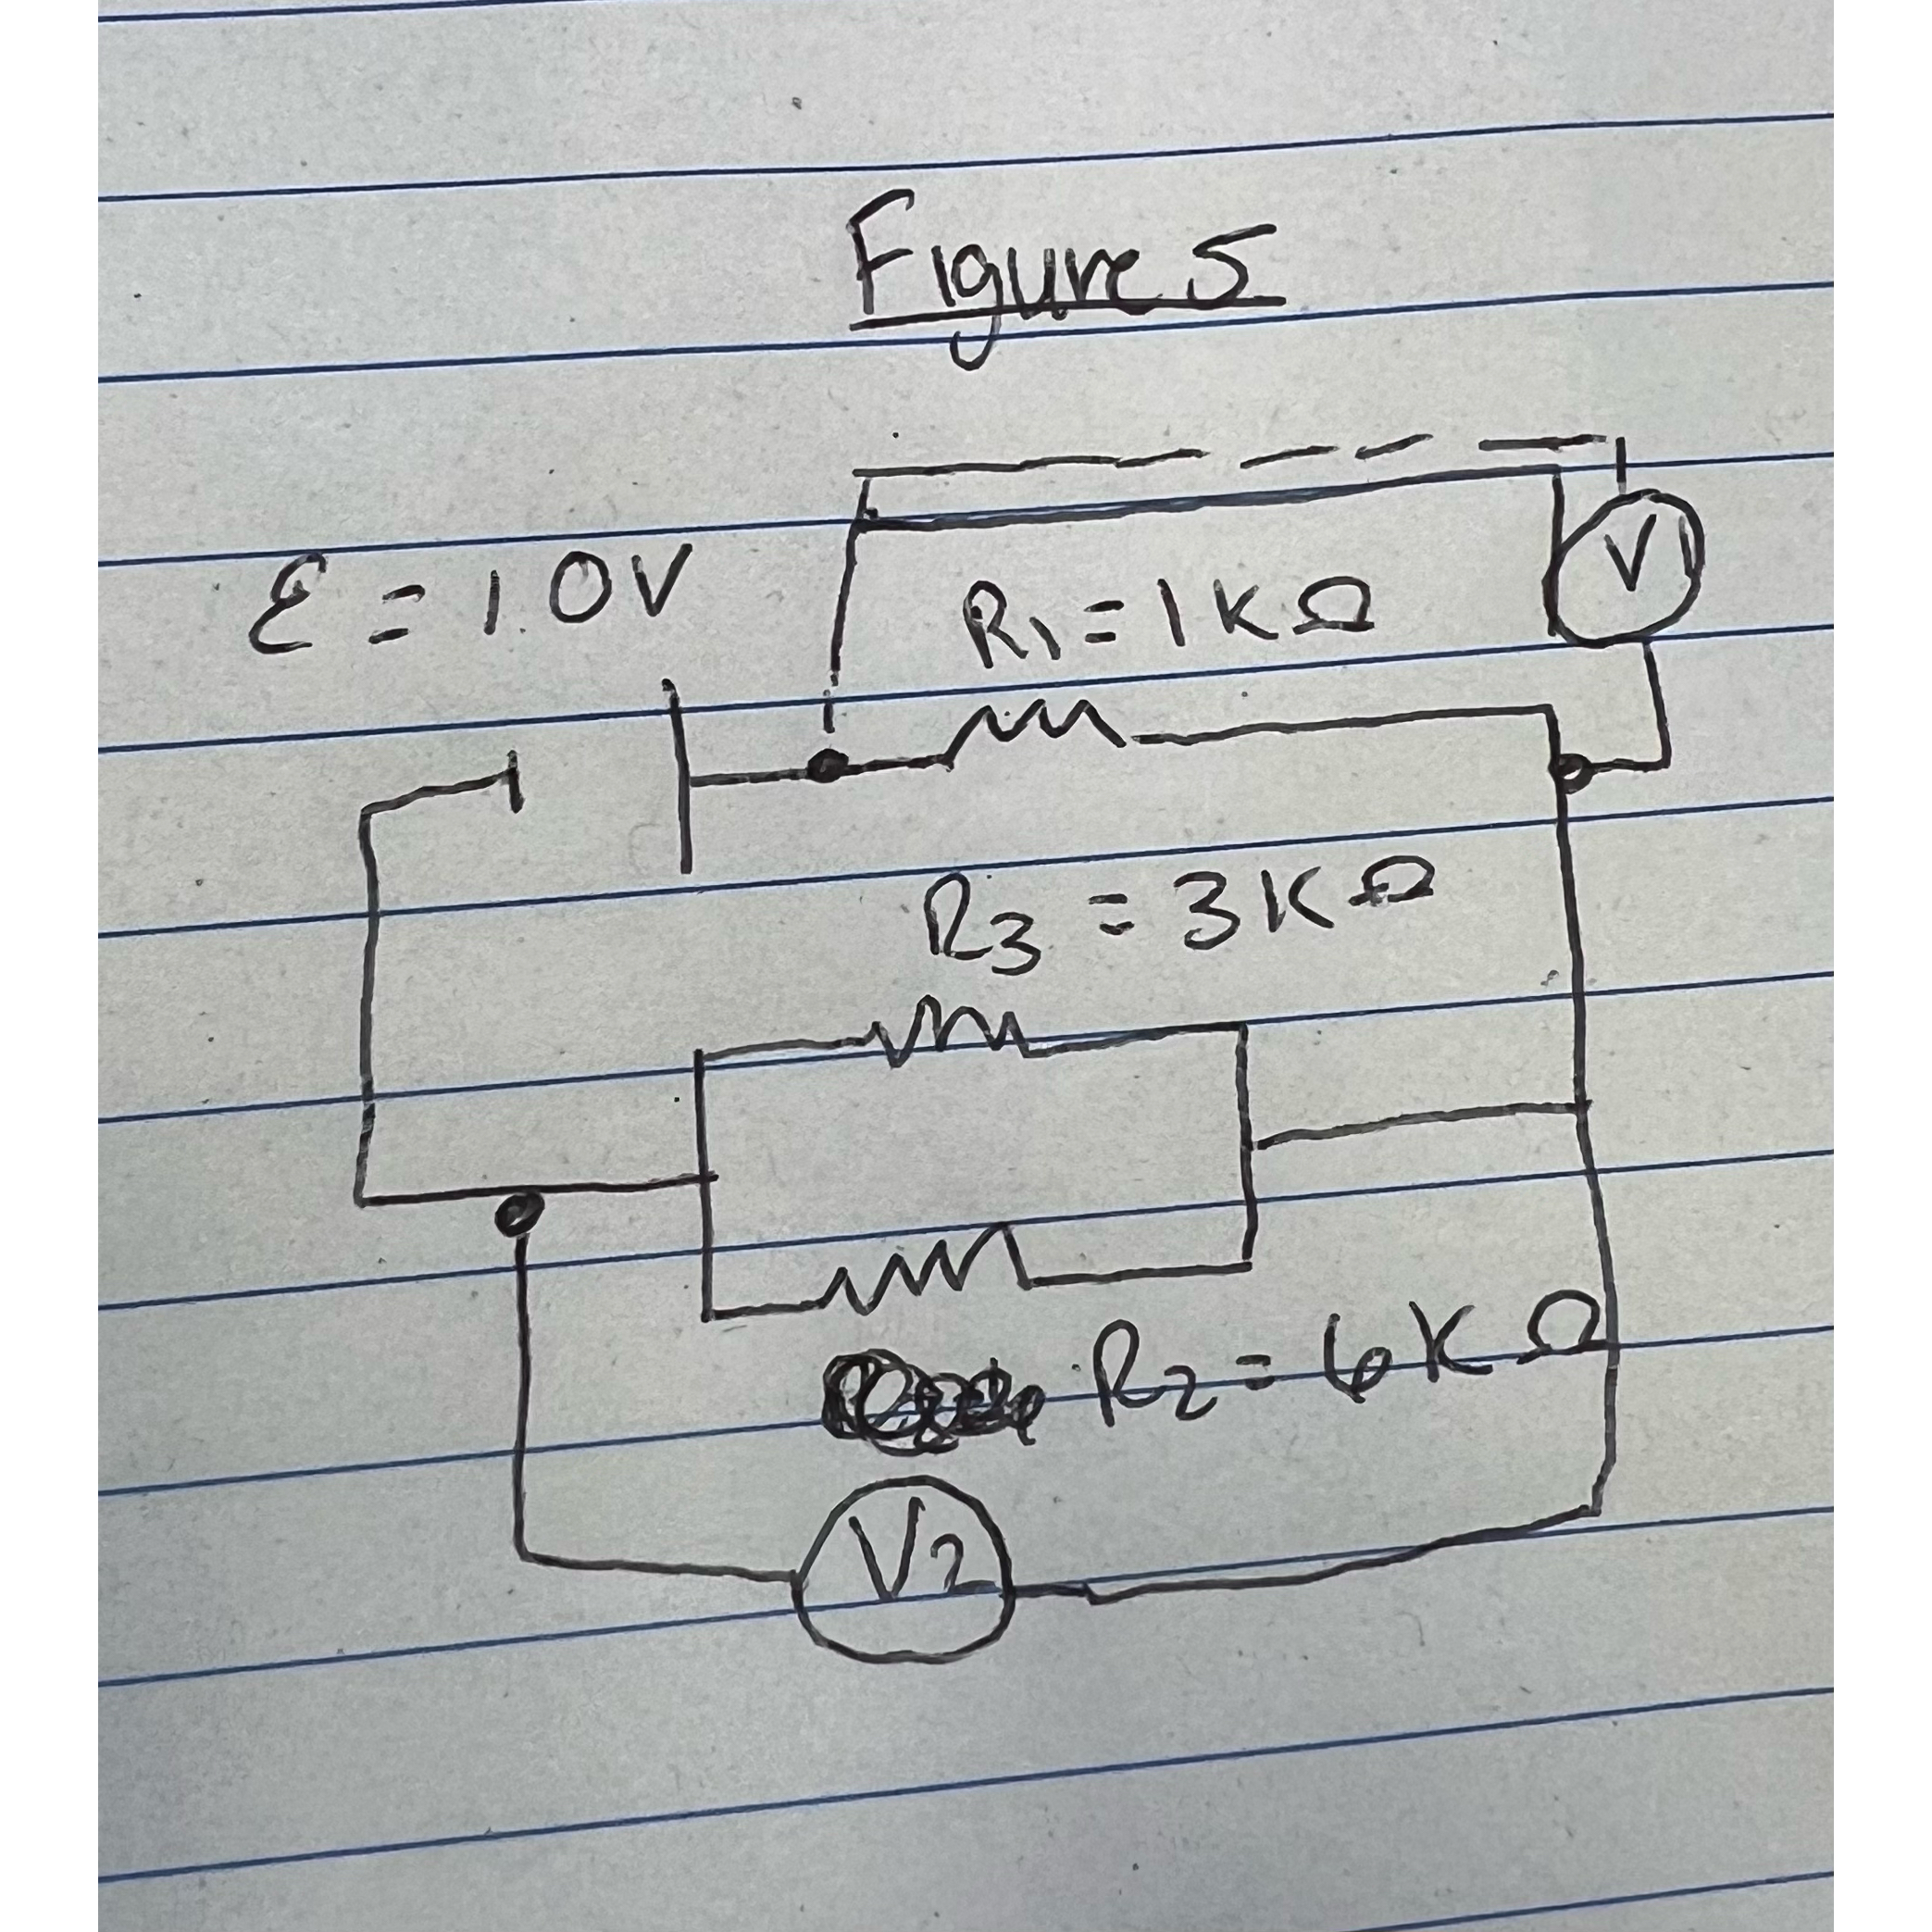 Figure 5
ε = 1.0V
R1 = 1KΩ
V1
R3 = 3KΩ
R2 = 6KΩ
V2